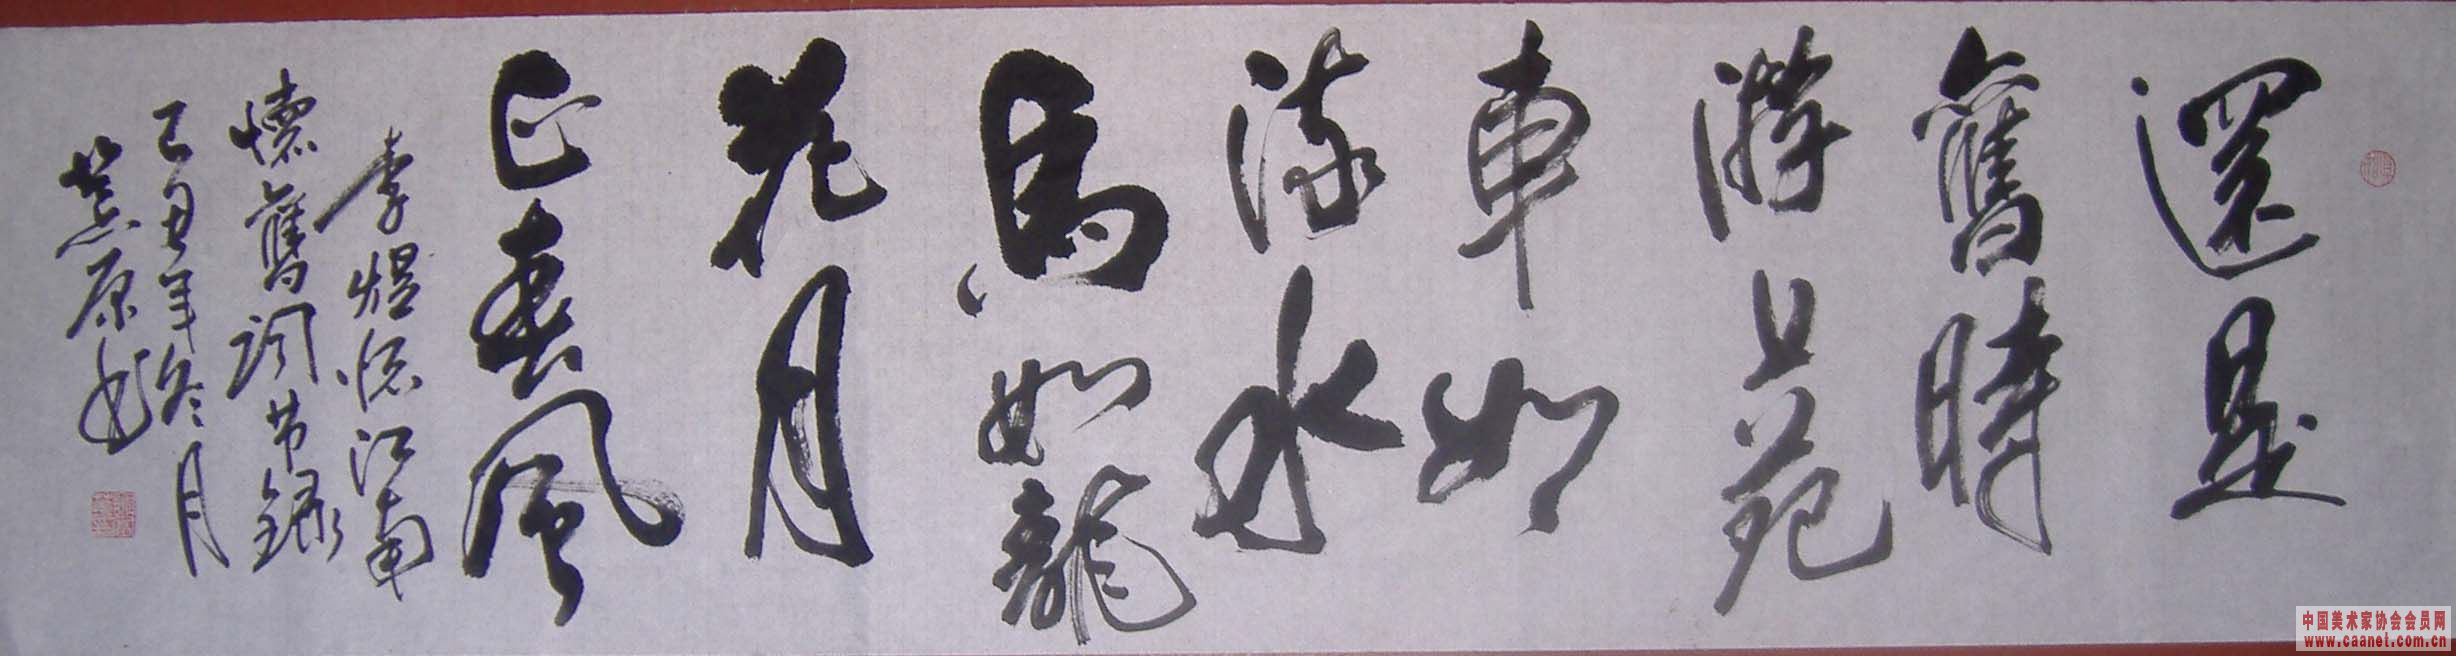 還是
舊時
游上苑
車如
流水
馬如龍
花月
正春風
李煜憶江南
懷舊词节錄
己丑年冬月
原书
中国美术家协会会员网
www.caanet.com.cn